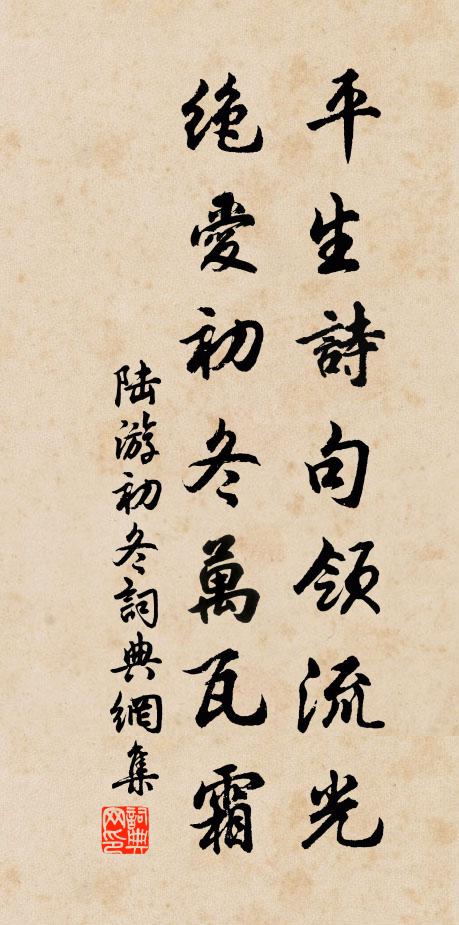 平生詩句領流光
絶愛初冬萬瓦霜
陸游初冬詞典網集
詞典網印